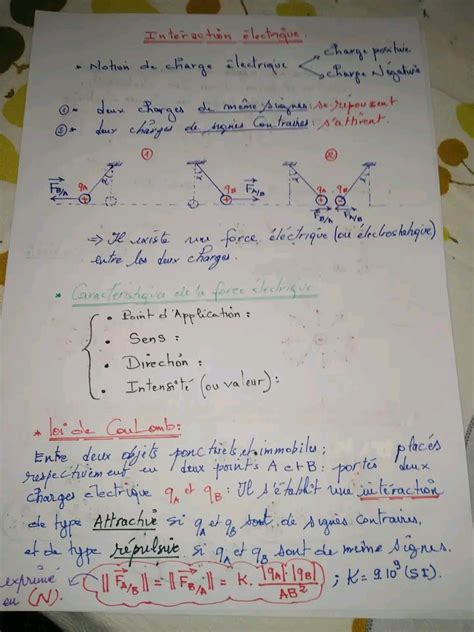 Interaction électrique.
* Notion de charge électrique
charge positive
charge Négative
① * deux charges de même signes: se repoussent
② * deux charges de signes Contraires: s'attirent.
① ②
F B/A qA qB F A/B qA qB
F B/A F A/B
⇒ Il existe une force électrique (ou électrostatique)
entre les deux charges.
* Caractéristiques de la force électrique
• Point d'Application :
• Sens :
• Direction :
• Intensité (ou valeur) :
* loi de Coulomb:
Entre deux objets ponctuels et immobiles ; placés
respectivement en deux points A et B : portés deux
charges électrique qA et qB : Il s'établit une intéraction
de type Attractive si qA et qB sont de signes contraires,
et de type répulsive si qA et qB sont de même signes.
exprimé
en (N). ||F A/B|| = ||F B/A|| = K. |qA|.|qB| / AB² ; K = 9.10⁹ (SI).